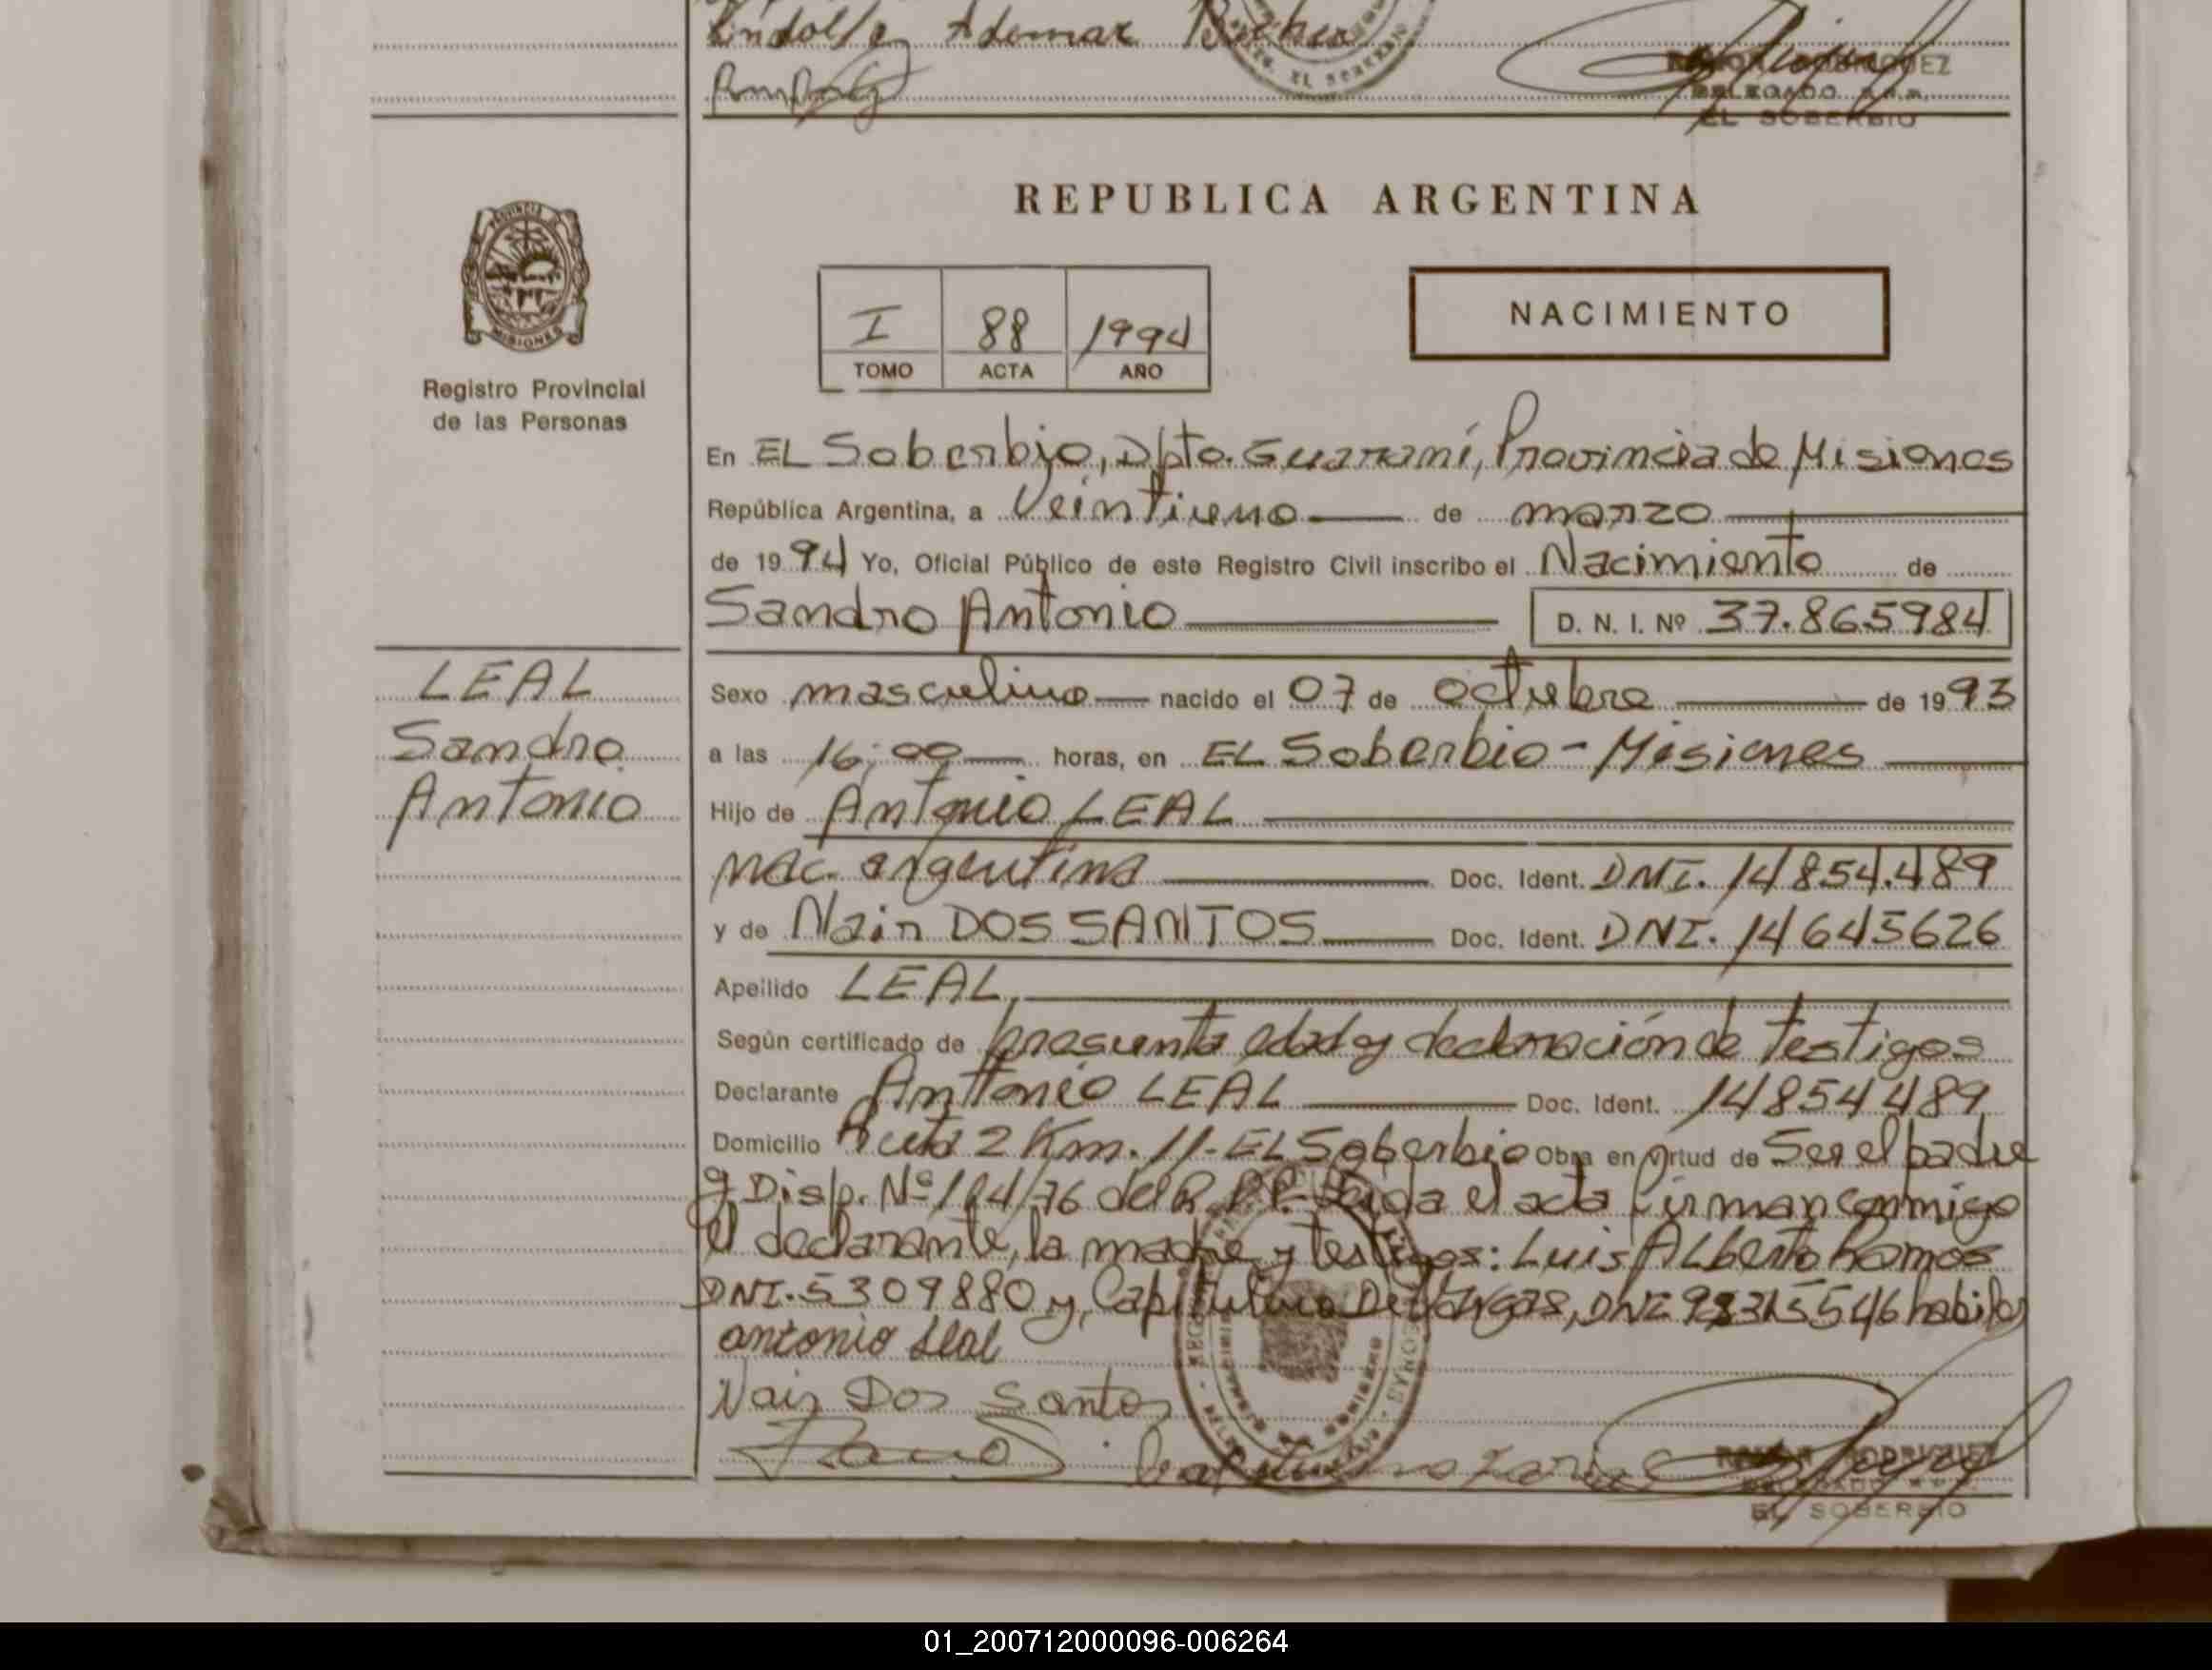 Ademar
RAMON RODRIGUEZ
DELEGADO
EL SOBERBIO
REPUBLICA ARGENTINA
PROVINCIA DE
MISIONES
Registro Provincial
de las Personas
I 88 1994
TOMO ACTA AÑO
NACIMIENTO
En EL Soberbio, Dpto. Guaraní, Provincia de Misiones
República Argentina, a Veintiuno de marzo
de 1994 Yo, Oficial Público de este Registro Civil inscribo el Nacimiento de
Sandro Antonio D. N. I. Nº 37.865984
LEAL
Sandro
Antonio
Sexo masculino nacido el 07 de octubre de 1993
a las 16:00 horas, en EL Soberbio - Misiones
Hijo de Antonio LEAL
nac. argentina Doc. Ident. DNI. 14854.489
y de Nair DOS SANTOS Doc. Ident. DNI. 14645626
Apellido LEAL
Según certificado de presunta edad y declaración de testigos
Declarante Antonio LEAL Doc. Ident. 14854489
Domicilio Ruta 2 Km. 11 - EL Soberbio Obra en virtud de Ser el padre
y Disp. Nº 104/76 del R.P.P. Leida el acta firman conmigo
el declarante, la madre y testigos: Luis ALberto Ramos
DNI. 5309880 y, Capitulino DNI habiles
antonio leal
Nair Dos Santos
RAMON RODRIGUEZ
DELEGADO
EL SOBERBIO
01_200712000096-006264